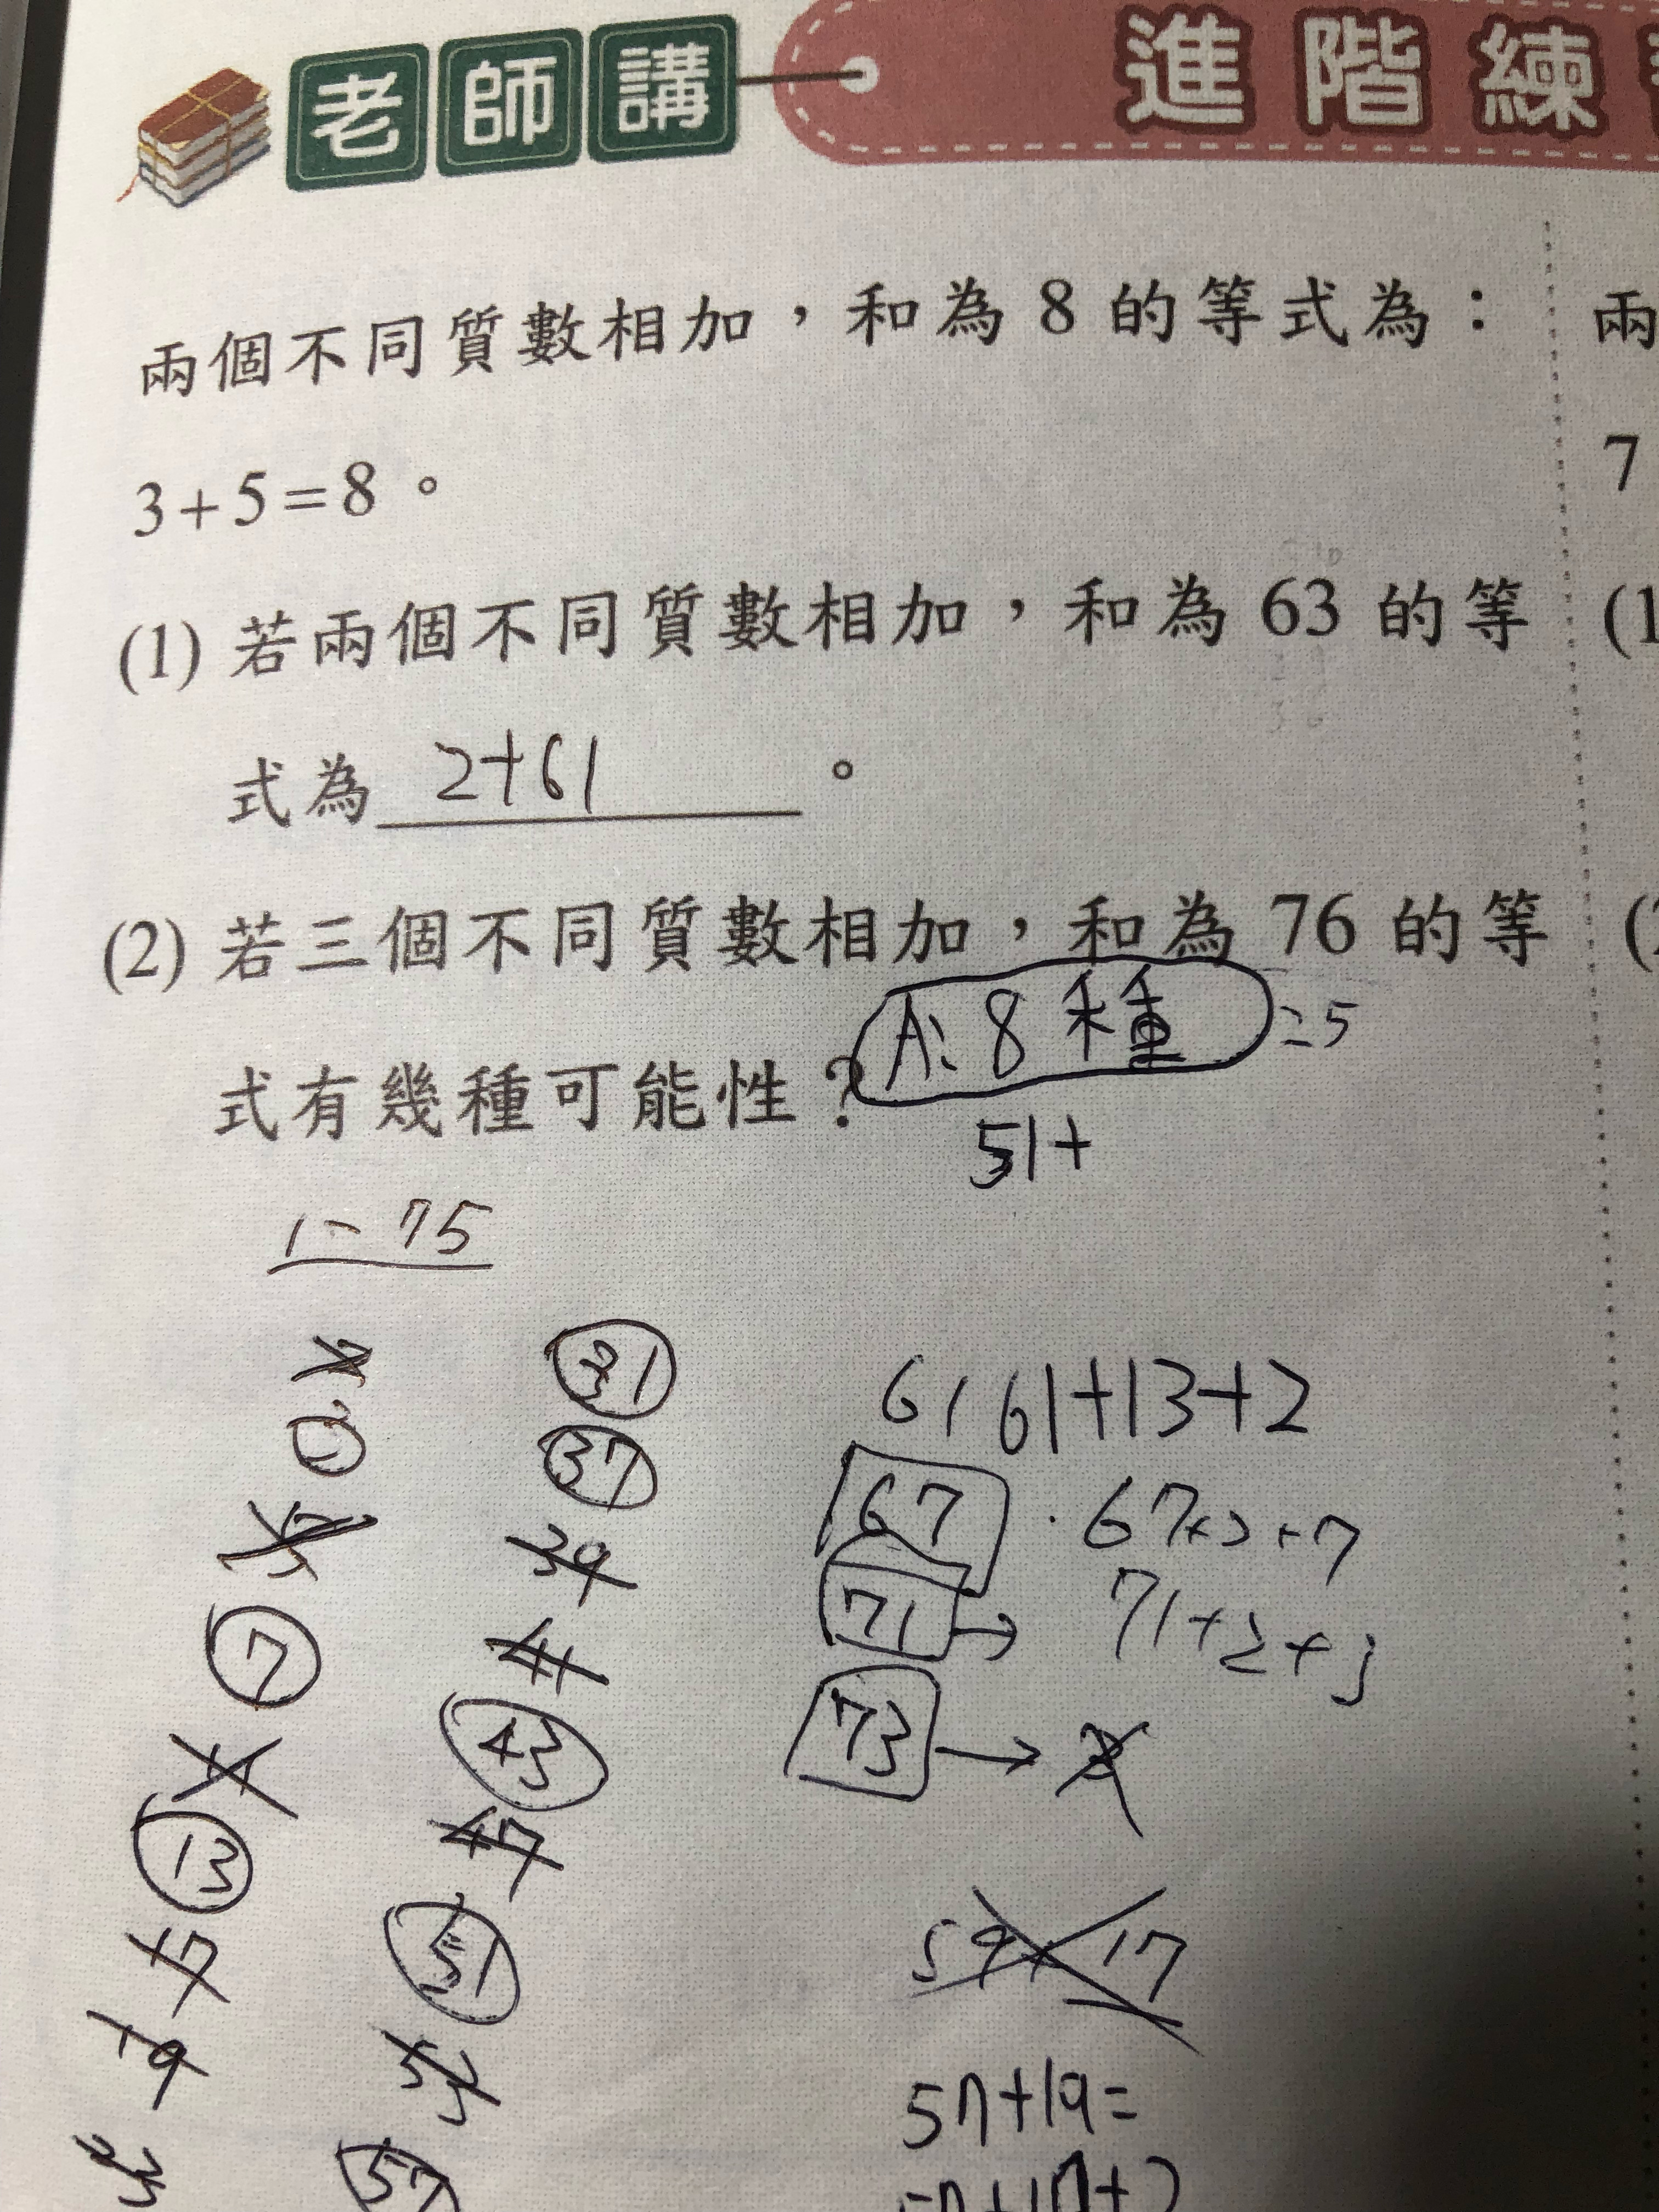 老師講 進階練
兩個不同質數相加，和為 8 的等式為：
3+5=8。
(1) 若兩個不同質數相加，和為 63 的等
式為 2+61 。
(2) 若三個不同質數相加，和為 76 的等
式有幾種可能性？
A: 8 種
=5
51+
1~75
31
37
39
7
43
13
47
17
51
19
61 61+13+2
67 67+2+7
71 → 71+2+3
73 →
59+17
57+19=
兩
7